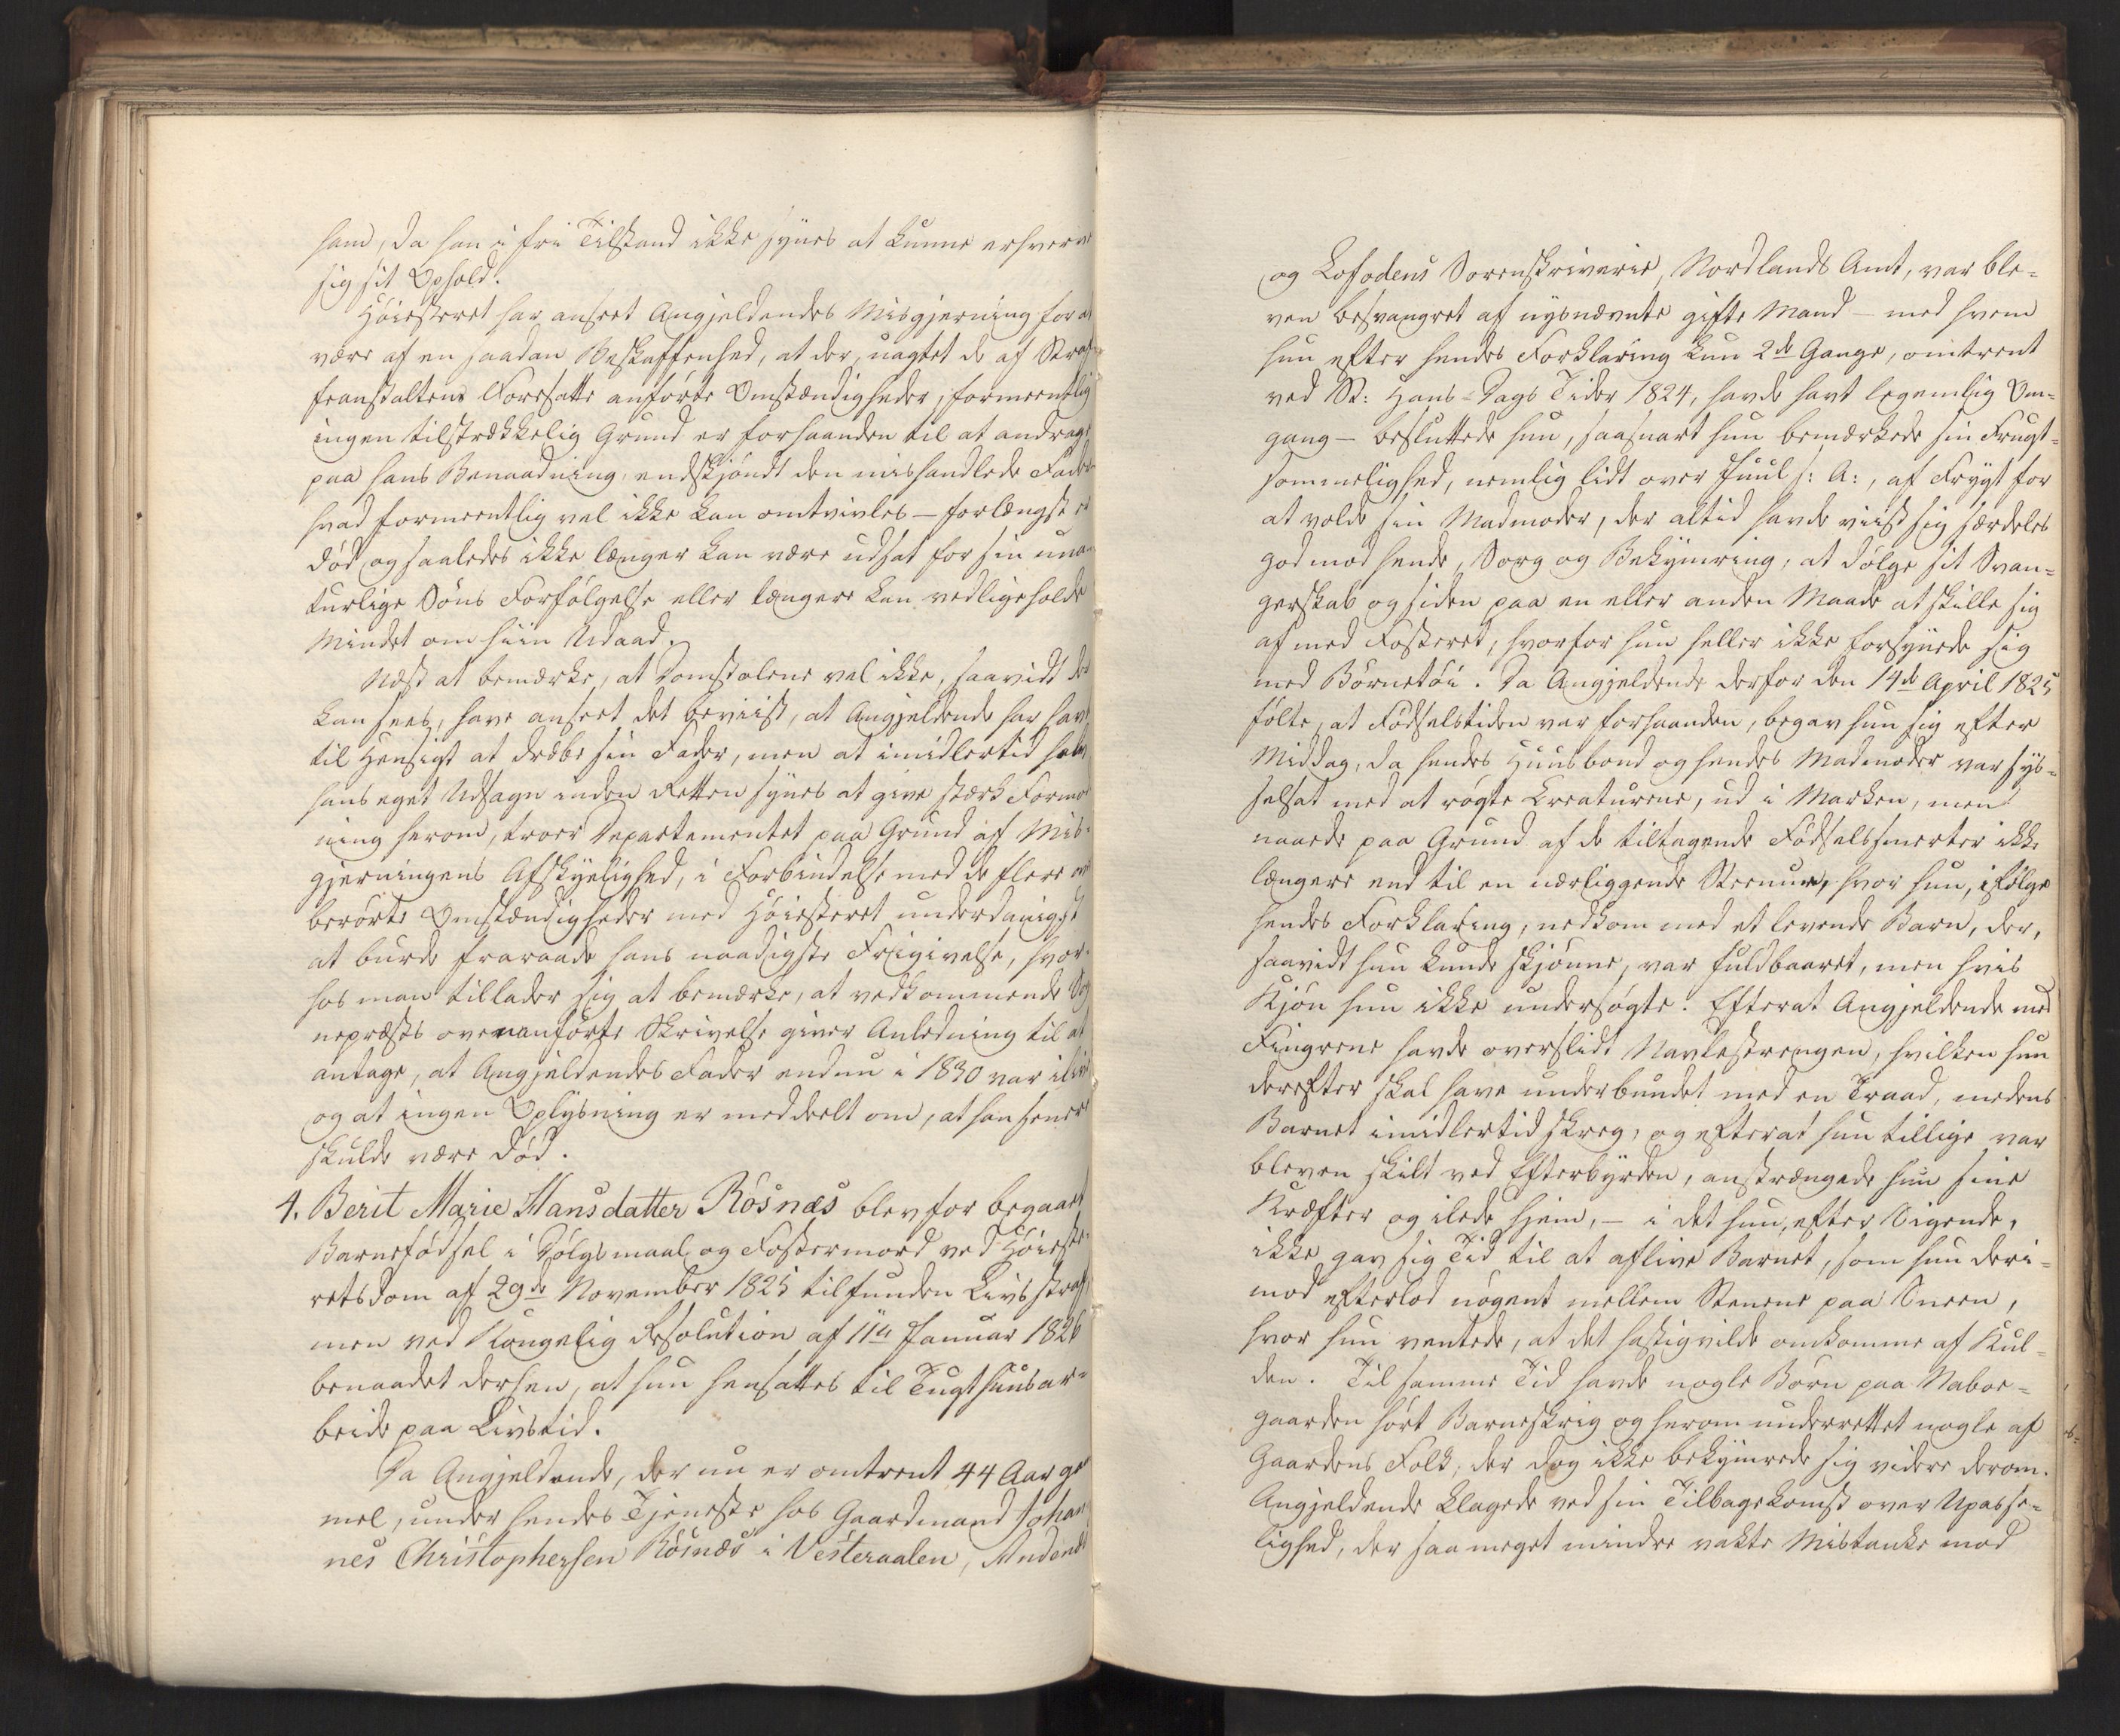 ham, da han i fri Tilstand ikke synes at kunne erhverve
sig sit Ophold.
Höiesteret har anseet Angjeldendes Misgjerning for at
være af en saadan Beskaffenhed, at der, uagtet de af Straf-
feanstaltens Foresatte anförte Omstændigheder, formeentlig
ingen tilstrækkelig Grund er forhaanden til at andrage
paa hans Benaadning, endskjöndt den mishandlede Fader
hvad formeentlig vel ikke kan omtvivles – forlængst er
död og saaledes ikke længer kan være udsat for sin una-
turlige Söns Forfölgelse eller længere kan vedligeholde
Mindet om hiin Udaad.
Næst at bemærke, at Domstolene vel ikke, saavidt det
kan sees, have anseet det beviist, at Angjeldende har havt
til Hensigt at dræbe sin Fader, men at imidlertid
hans eget Udsagn inden Retten synes at give stærk Formod
ning herom, troer Departementet paa Grund af Mis-
gjerningens Afskyelighed, i Forbindelse med de flere oven
berörte Omstændigheder med Höiesteret underdanigst
at burde fraraade hans naadigste Frigivelse, hvor-
hos man tillader sig at bemærke, at vedkommende Sog
nepræsts ovenanförte Skrivelse giver Anledning til at
antage, at Angjeldendes Fader endnu i 1830 var ilive
og at ingen Oplysning er meddeelt om, at han senere
skulde være död.
4. Berit Marie Hansdatter Rösnæs blev for begaaet
Barnefödsel i Dölgsmaal og Fostermord ved Höieste-
retsdom af 29de November 1825 tilfunden Livsstraf
men ved Kongelig Resolution af 11te Januar 1826
benaadet derhen, at hun hensattes til Tugthuusar-
beide paa Livstid.
Da Angjeldende, der nu er omtrent 44 Aar gam
mel, under hendes Tjeneste hos Gaardmand Johan
nes Christophersen Rösnæs i Vesteraalen, Andenæs
og Lofodens Sorenskriverie, Nordlands Amt, var ble-
ven besvangret af nysnævnte gifte Mand – med hvem
hun efter hendes Forklaring kun 2de Gange, omtrent
ved St: Hans-Dags Tider 1824, havde havt legemlig Om-
gang – besluttede hun, saasnart hun bemærkede sin Frugt-
sommelighed, nemlig lidt over Juul s: A:, af Frygt for
at volde sin Madmoder, der altid havde viist sig særdeles
god mod hende, Sorg og Bekymring, at dölge sit Svan-
gerskab og siden paa en eller anden Maade at skille sig
af med Fosteret, hvorfor hun heller ikke forsynede sig
med Börnetöi. Da Angjeldende derfor den 14de April 1825
fölte, at Födselstiden var forhaanden, begav hun sig efter
Middag, da hendes Huusbond og hendes Madmoder var sys-
selsat med at rögte Creaturene, ud i Marken, men
naaede paa Grund af de tiltagende Födselssmerter ikke
længere end til en nærliggende Steenuur, hvor hun, ifölge
hendes Forklaring, nedkom med et levende Barn, der,
saavidt hun kunde skjönne, var fuldbaaret, men hvis
Kjön hun ikke undersögte. Efterat Angjeldende med
Fingrene havde overslidt Navlestrengen, hvilken hun
derefter skal have underbundet med en Traad, medens
Barnet imidlertid skreg, og efterat hun tillige var
bleven skilt ved Efterbyrden, anstrængede hun sine
Kræfter og ilede hjem, – i det hun, efter Sigende,
ikke gav sig Tid til at aflive Barnet, som hun deri-
mod efterlod nögent mellem Stenene paa Sneen,
hvor hun ventede, at det hastig vilde omkomme af Kul-
den. Til samme Tid havde nogle Börn paa Naboe-
gaarden hört Barneskrig og herom underrettet nogle af
Gaardens Folk, der dog ikke bekymrede sig videre derom.
Angjeldende klagede ved sin Tilbagekomst over Upasse-
lighed, der saa meget mindre vakte Mistanke mod